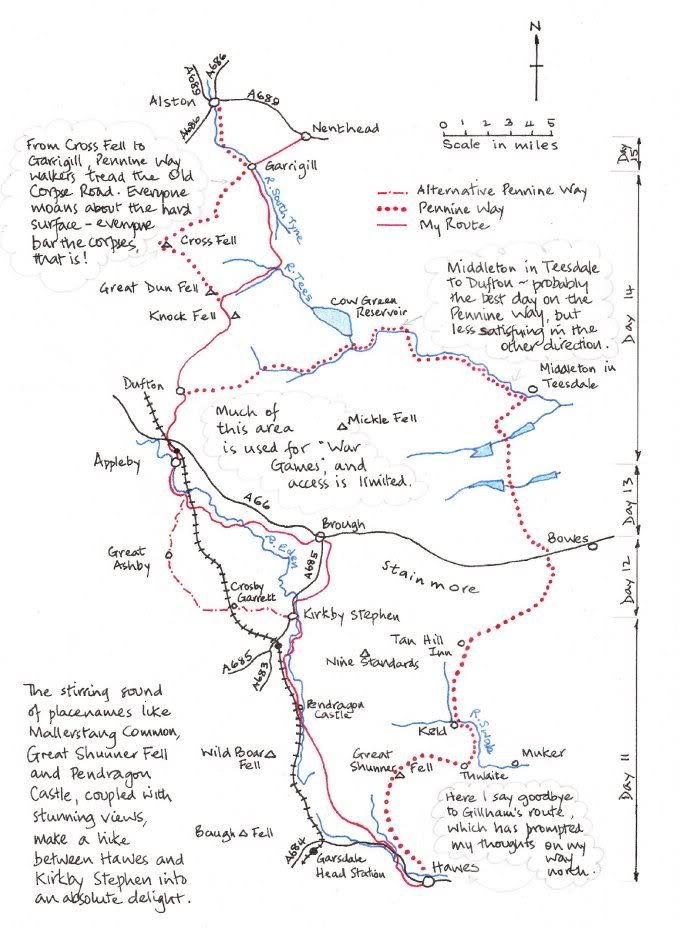 N
A686
A689
Alston
A689
A686
Nenthead
0 1 2 3 4 5
Scale in miles
Day 15
From Cross Fell to
Garrigill, Pennine Way
walkers tread the Old
Corpse Road. Everyone
moans about the hard
surface – everyone
bar the corpses,
that is!
Garrigill
R. South Tyne
Alternative Pennine Way
Pennine Way
My Route
Cross Fell
R. Tees
Great Dun Fell
Knock Fell
Cow Green
Reservoir
Middleton in Teesdale
to Dufton ~ probably
the best day on the
Pennine Way, but
less satisfying in the
other direction.
Day 14
Dufton
Middleton in
Teesdale
Much of
this area
is used for "War
Games", and
access is limited.
Mickle Fell
Appleby
A66
Day 13
Brough
R. Eden
A685
Bowes
Great
Ashby
Stainmore
Day 12
Crosby
Garrett
Kirkby Stephen
A685
A683
Nine Standards
Tan Hill
Inn
The stirring sound
of placenames like
Mallerstang Common,
Great Shunner Fell
and Pendragon
Castle, coupled with
stunning views,
make a hike
between Hawes and
Kirkby Stephen into
an absolute delight.
Pendragon
Castle
Keld
R. Swale
Muker
Thwaite
Wild Boar
Fell
Great
Shunner Fell
Day 11
Baugh Fell
A684
Garsdale
Head Station
Hawes
Here I say goodbye
to Gillham's route,
which has prompted
my thoughts on my
way
north.